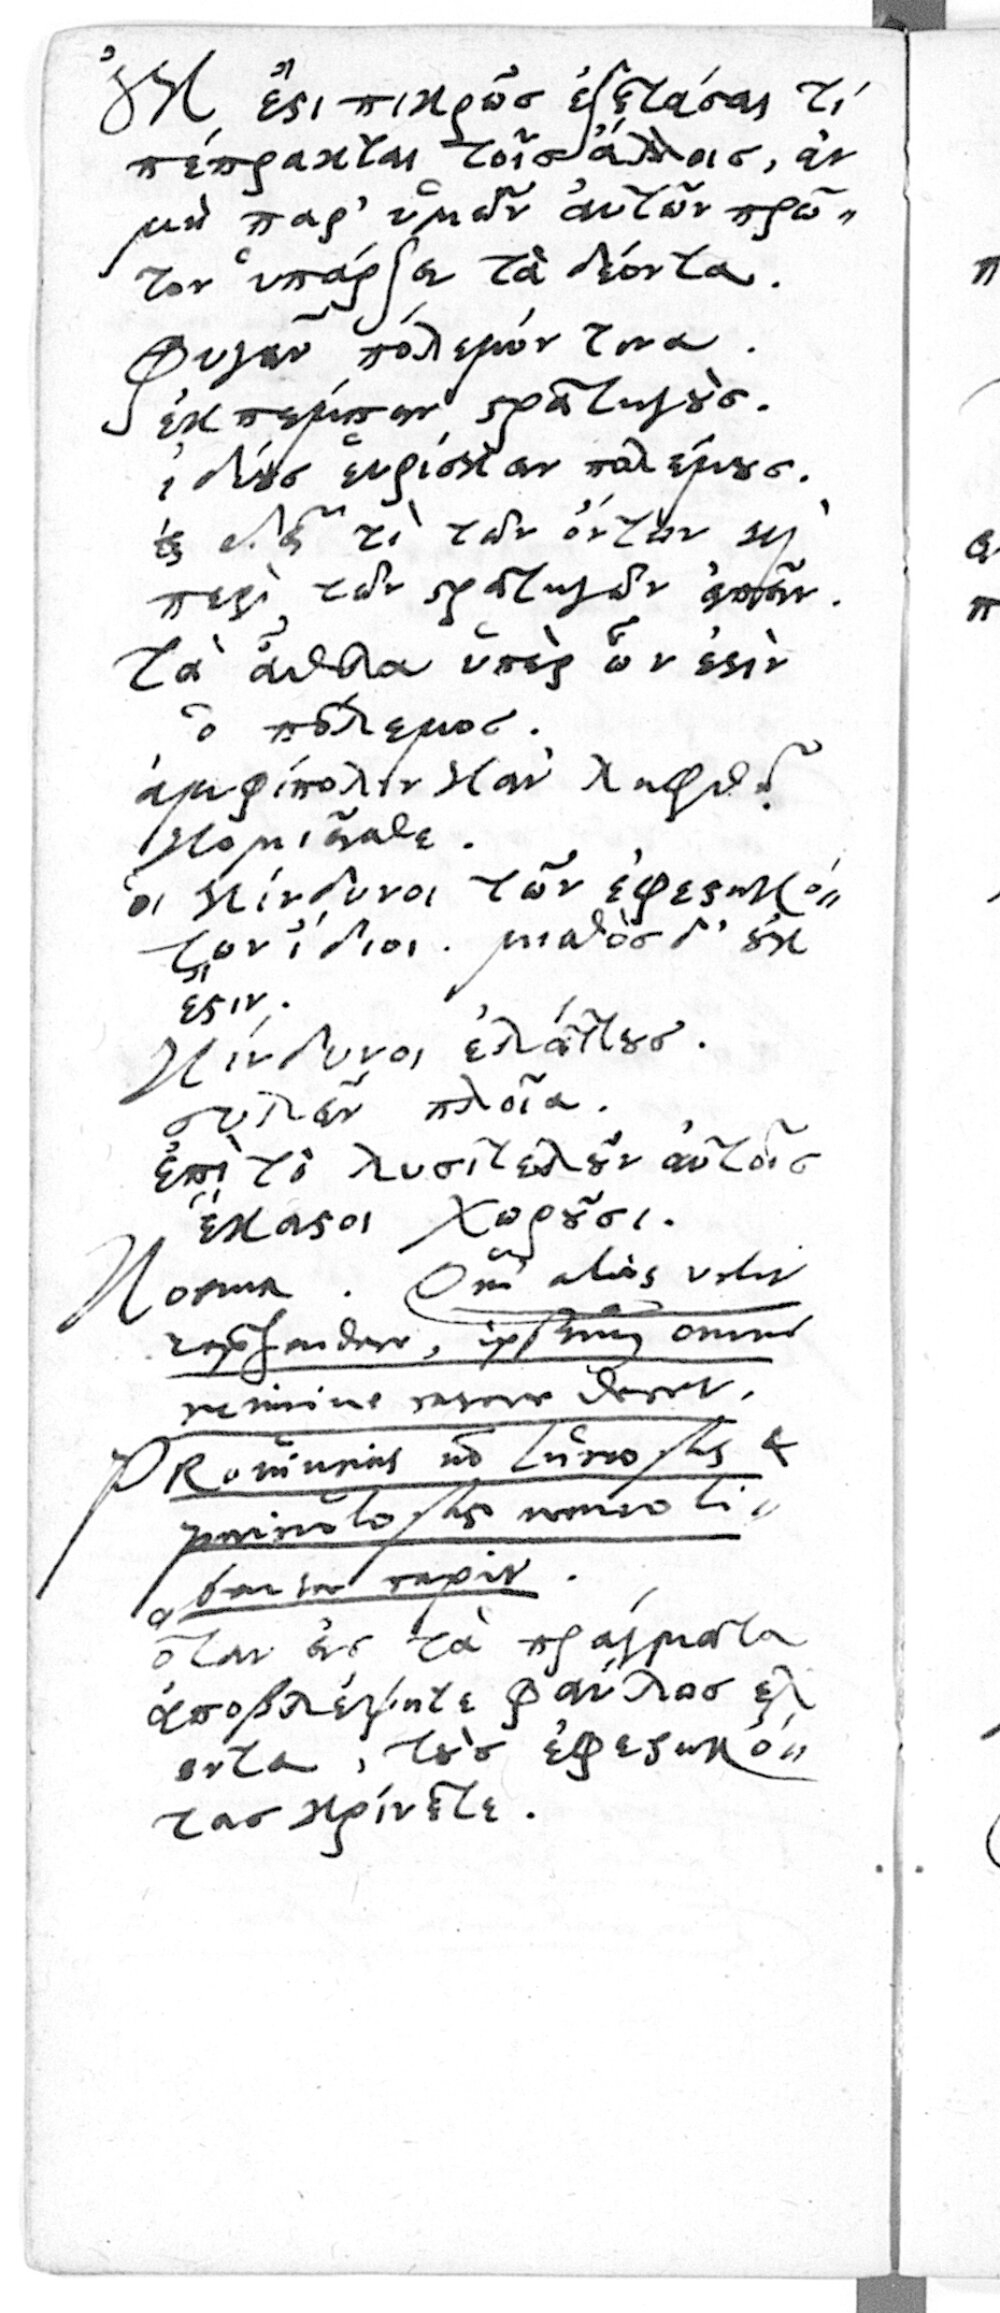 οὐκ ἔστι πικρῶς ἐξετάσαι τί
πέπρακται τοῖς ἄλλοις, ἂν
μὴ παρ' ὑμῶν αὐτῶν πρῶ〃
τον ὑπάρξῃ τὰ δέοντα.
Φυγεῖν πόλεμόν τινα.
ἐκπέμπειν στρατηγούς.
ἰδίους εὑρίσκειν πολέμους.
εἰ δεῖ τι τῶν ὄντων καὶ
περὶ τῶν στρατηγῶν εἰπεῖν.
τὰ ἆθλα ὑπὲρ ὧν ἐστὶν
ὁ πόλεμος.
ἀμφίπολιν κἂν ληφθῇ
κομιεῖσθε.
οἱ κίνδυνοι τῶν ἐφεστηκό〃
των ἴδιοι. μισθὸς δ' οὐκ
ἔστιν.
κίνδυνοι ἐλάττους.
συλᾶν πλοῖα.
ἐπὶ τὸ λυσιτελοῦν αὐτοῖς
ἕκαστοι χωροῦσι.
alios velit
, omni
&
ὅταν εἰς τὰ πράγματα
ἀποβλέψητε φαύλως ἔχ
οντα, τοὺς ἐφεστηκό〃
τας κρίνετε.